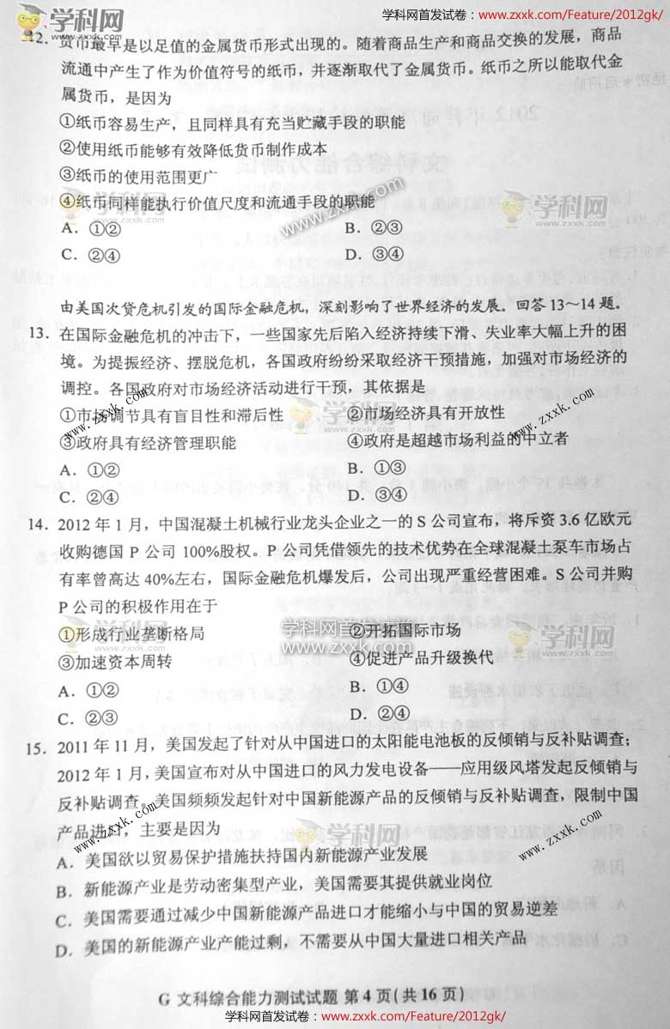 学科网首发试卷：www.zxxk.com/Feature/2012gk/
学科网
www.zxxk.com
12. 货币最早是以足值的金属货币形式出现的。随着商品生产和商品交换的发展，商品
流通中产生了作为价值符号的纸币，并逐渐取代了金属货币。纸币之所以能取代金
属货币，是因为
①纸币容易生产，且同样具有充当贮藏手段的职能
②使用纸币能够有效降低货币制作成本
③纸币的使用范围更广
④纸币同样能执行价值尺度和流通手段的职能
A．①②
B．②③
C．②④
D．③④
由美国次贷危机引发的国际金融危机，深刻影响了世界经济的发展。回答13～14题。
13. 在国际金融危机的冲击下，一些国家先后陷入经济持续下滑、失业率大幅上升的困
境。为提振经济、摆脱危机，各国政府纷纷采取经济干预措施，加强对市场经济的
调控。各国政府对市场经济活动进行干预，其依据是
①市场调节具有盲目性和滞后性
②市场经济具有开放性
③政府具有经济管理职能
④政府是超越市场利益的中立者
A．①②
B．①③
C．②④
D．③④
14. 2012 年 1 月，中国混凝土机械行业龙头企业之一的 S 公司宣布，将斥资 3.6 亿欧元
收购德国 P 公司 100%股权。P 公司凭借领先的技术优势在全球混凝土泵车市场占
有率曾高达 40%左右，国际金融危机爆发后，公司出现严重经营困难。S 公司并购
P 公司的积极作用在于
①形成行业垄断格局
②开拓国际市场
③加速资本周转
④促进产品升级换代
A．①②
B．①④
C．②③
D．②④
15. 2011 年 11 月，美国发起了针对从中国进口的太阳能电池板的反倾销与反补贴调查；
2012 年 1 月，美国宣布对从中国进口的风力发电设备——应用级风塔发起反倾销与
反补贴调查。美国频频发起针对中国新能源产品的反倾销与反补贴调查，限制中国
产品进口，主要是因为
A．美国欲以贸易保护措施扶持国内新能源产业发展
B．新能源产业是劳动密集型产业，美国需要其提供就业岗位
C．美国需要通过减少中国新能源产品进口才能缩小与中国的贸易逆差
D．美国的新能源产业产能过剩，不需要从中国大量进口相关产品
G 文科综合能力测试试题 第 4 页（共 16 页）
学科网首发试卷：www.zxxk.com/Feature/2012gk/